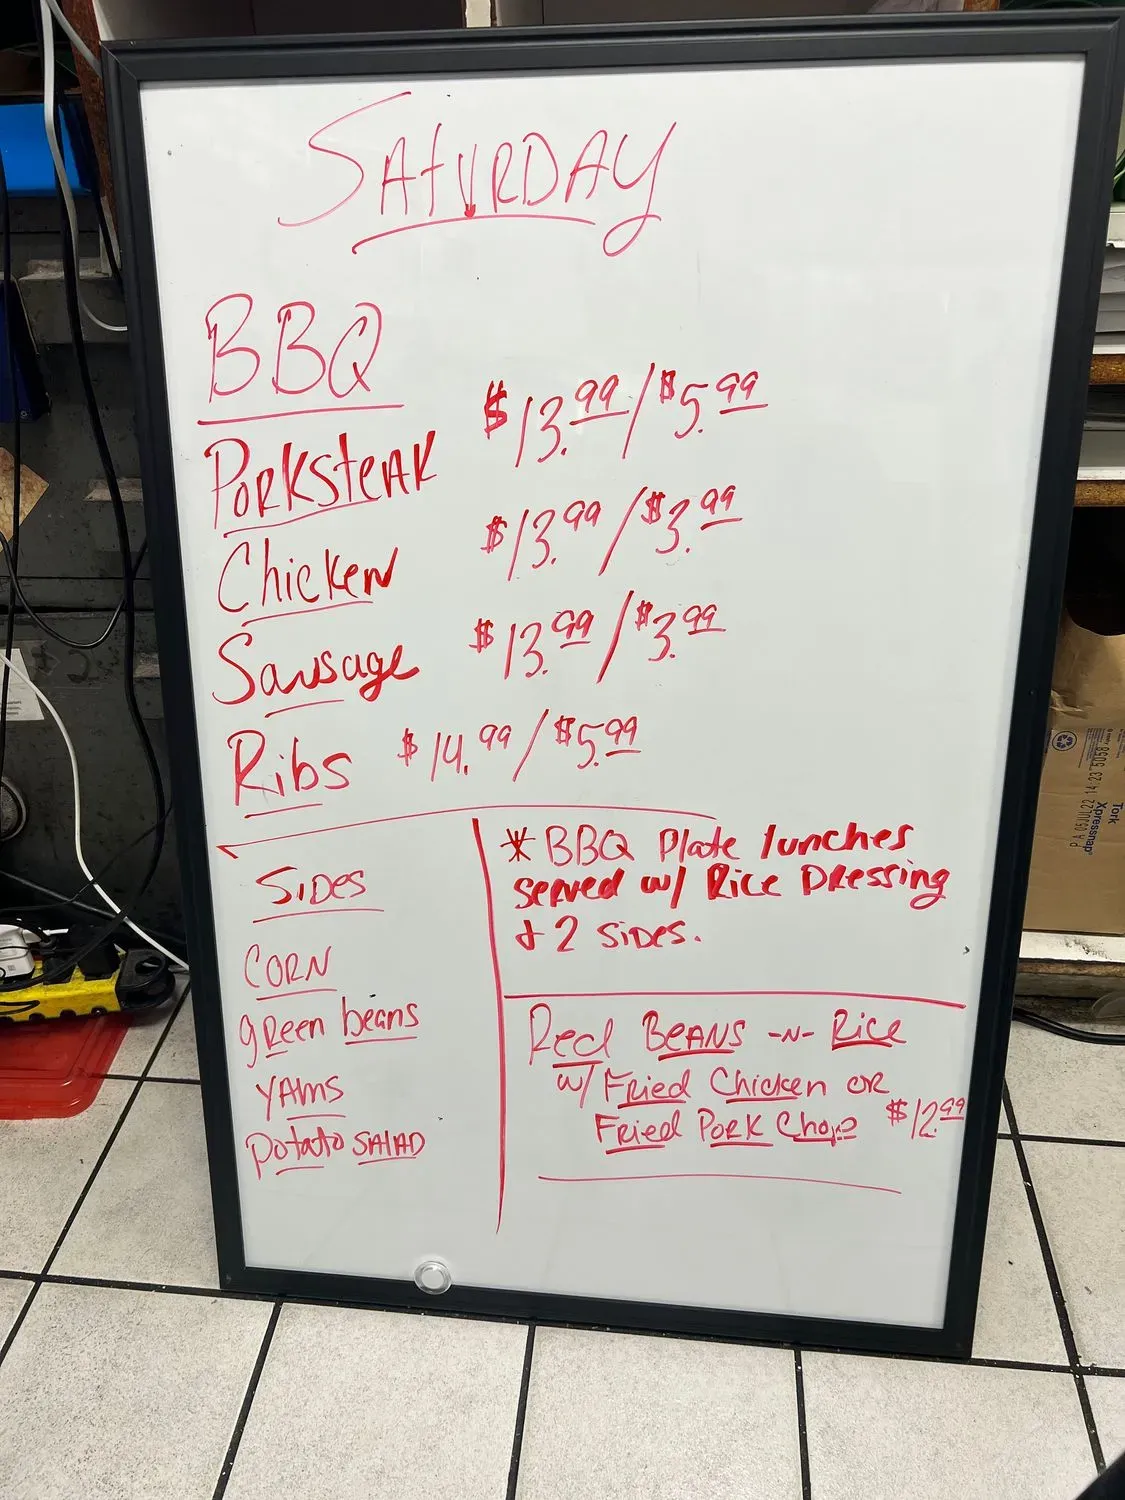 SAtURDAY
BBQ
PORKSteAK $13.99/$5.99
Chicken $13.99/$3.99
Sausage $13.99/$3.99
Ribs $14.99/$5.99
SiDes
CORN
green beans
YAms
potato SALAD
* BBQ Plate lunches
served w/ Rice DRessing
+ 2 sides.
Red BEANS -N- Rice
w/ FRied Chicken OR
FRied PORK Chops $12.99
Tork
Xpressnap®
P A 05JUL22 14:23 8505